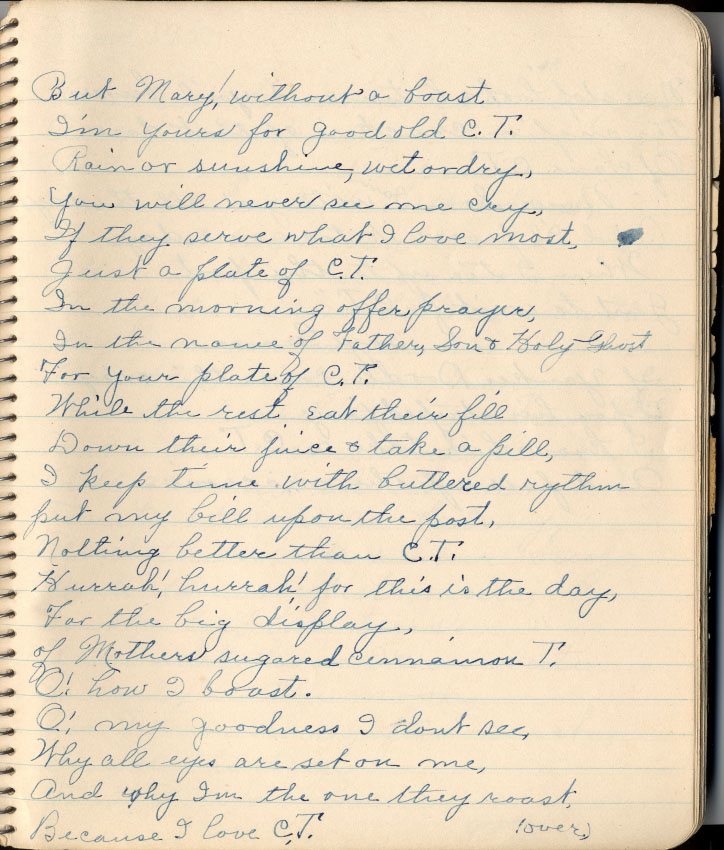 But Mary! without a boast
I'm yours for good old C.T.
Rain or sunshine, wet or dry,
You will never see me cry,
If they serve what I love most,
Just a plate of C.T.
In the morning offer prayer,
In the name of Father, Son & Holy Ghost
For your plate of C.T.
While the rest eat their fill
Down their juice & take a pill,
I keep time with buttered rythm
put my bill upon the post,
Nothing better than C.T.
Hurrah! hurrah! for this is the day,
For the big display,
of Mothers sugared cinnamon T.
O! how I boast.
O! my goodness I dont see,
Why all eyes are set on me,
And why I'm the one they roast,
Because I love C.T.
(over)